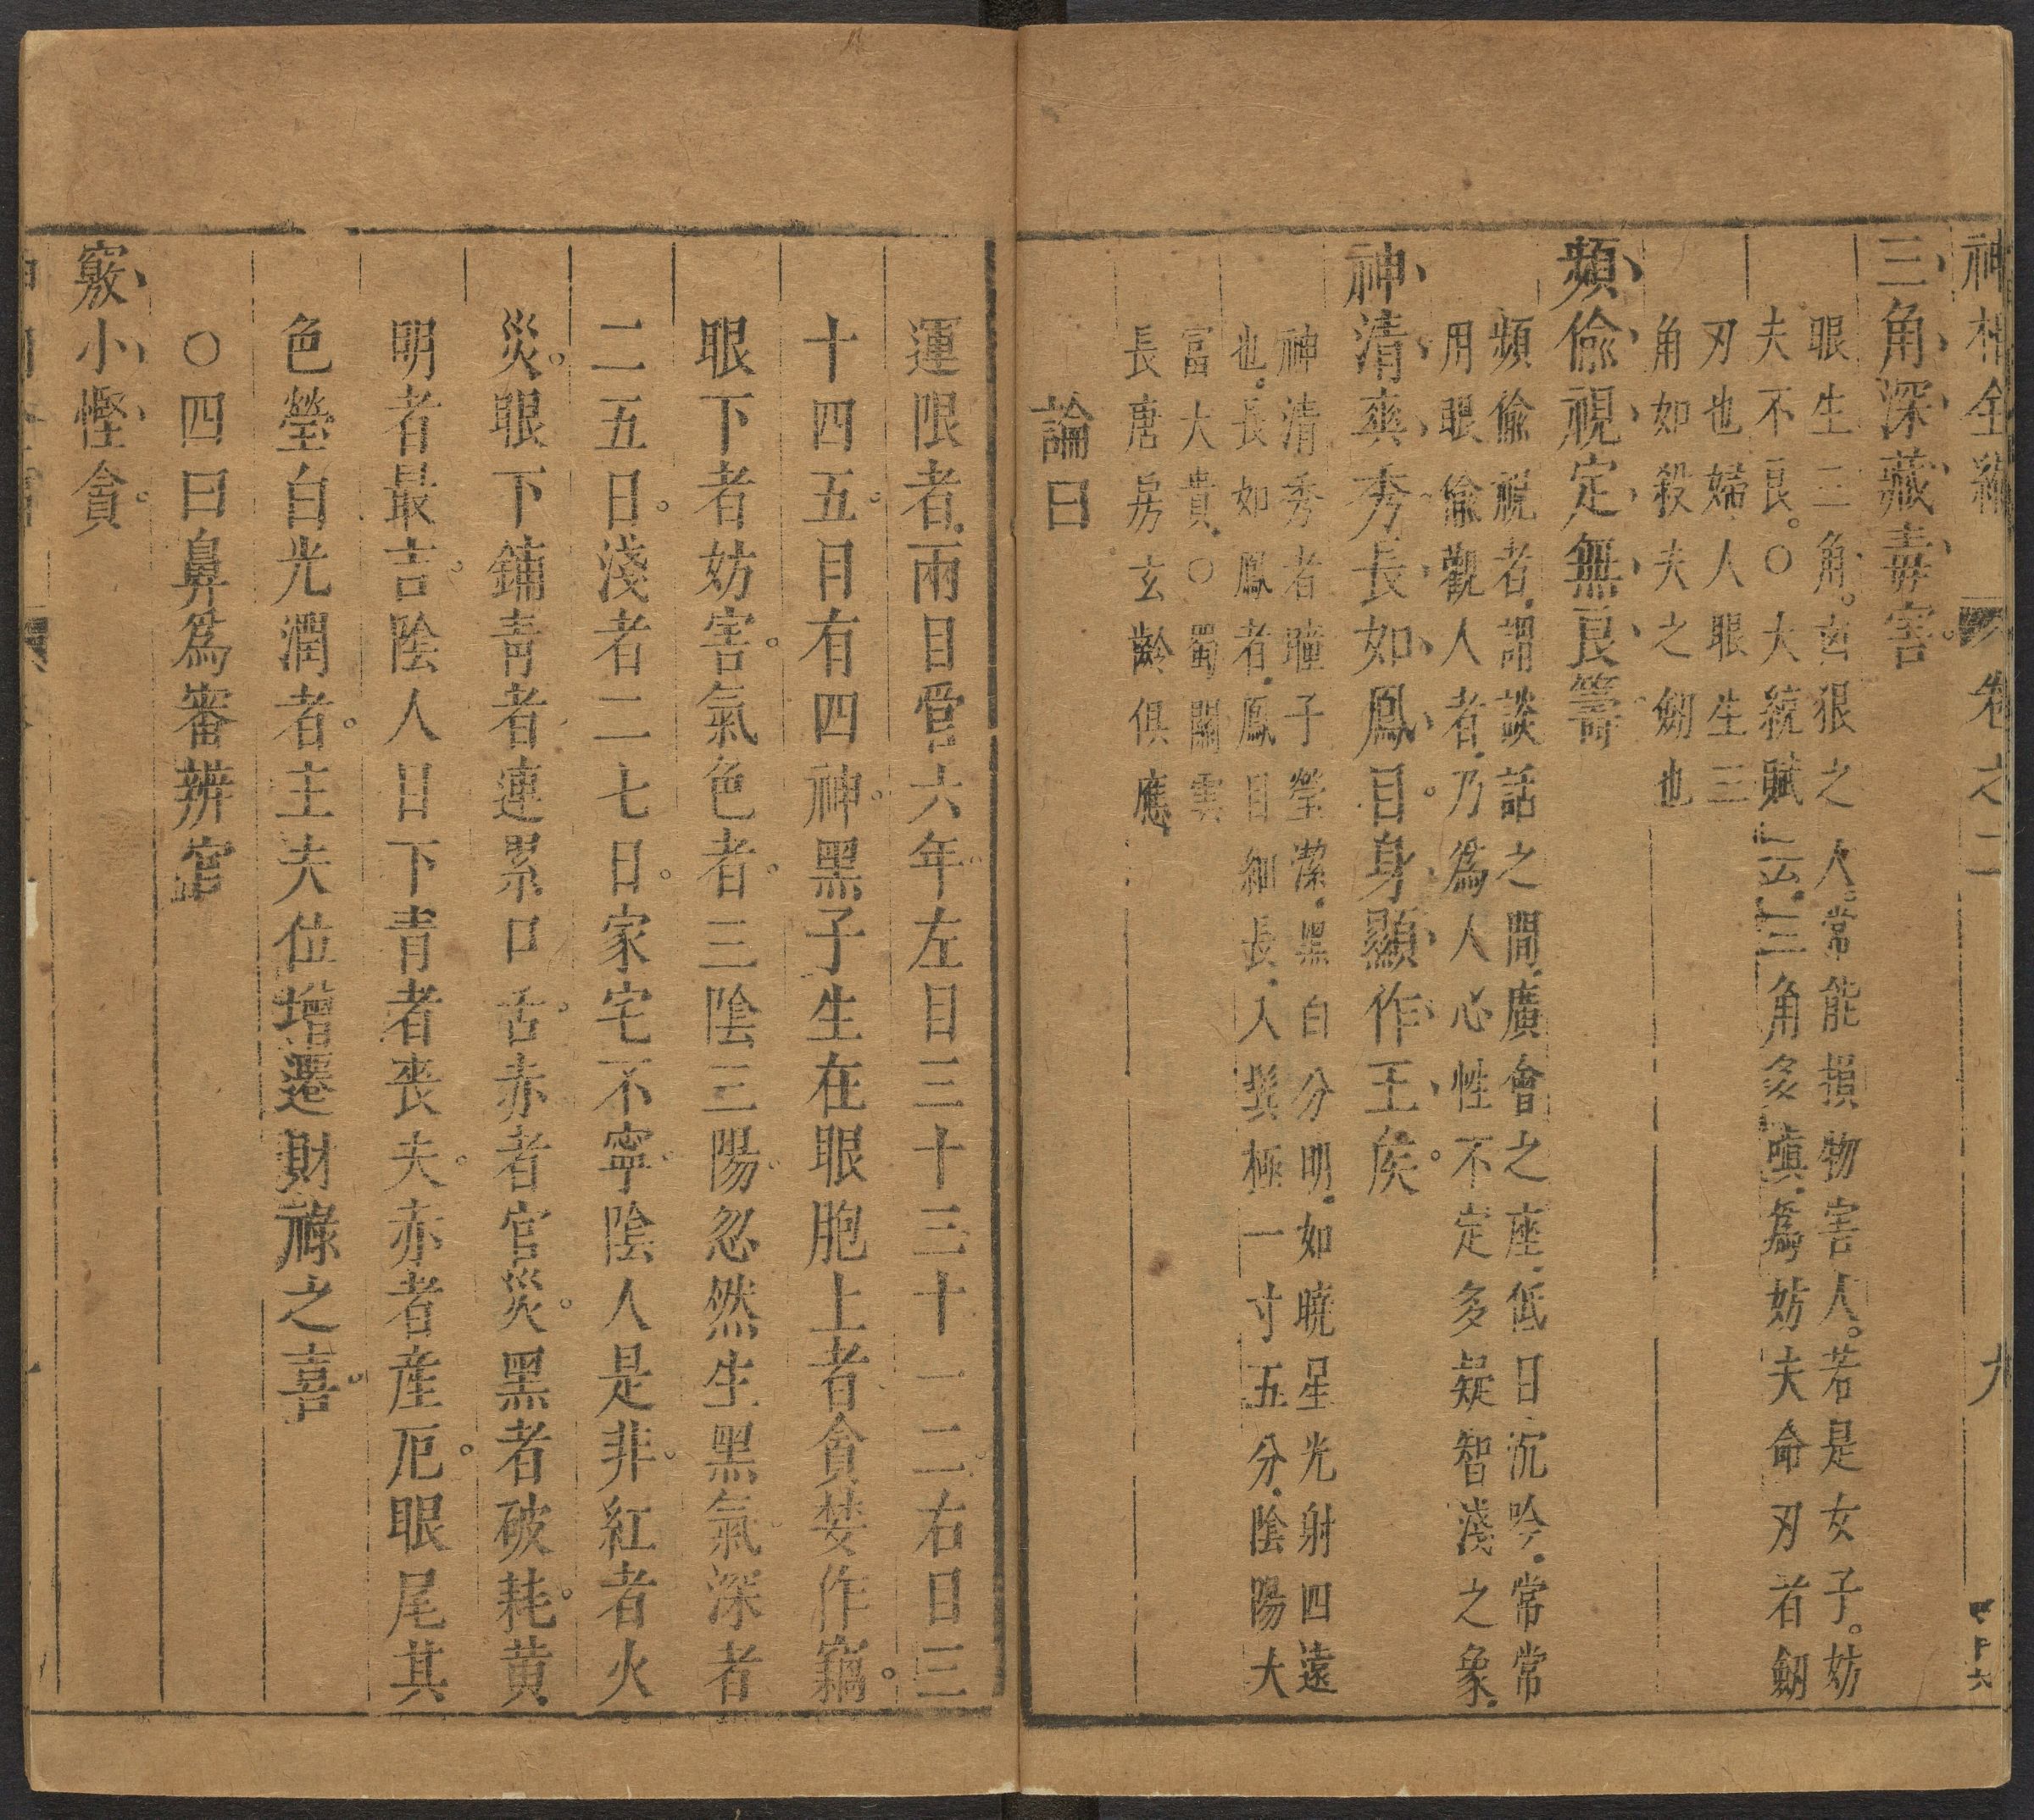 神相全編 卷之二 九
三角深藏毒害。
眼生三角。凶狠之人。常能損物害人。若是女子。妨
夫不良。○大統賦云。三角多嗔。為妨夫命刃者劒
刃也婦人眼生三
角如殺夫之劒也
頻偷視定無良籌
頻偷視者。謂談話之間。廣會之座。低目沉吟。常常
用眼偷觀人者。乃為人心性不定多疑智淺之象。
神清爽秀長如鳳目。身顯作王侯。
神清秀者瞳子瑩潔。黑白分明。如曉星光射四遠
也。長如鳳者。鳳目細長。入鬂極一寸五分。陰陽大
富大貴。○蜀關雲
長唐房玄齡俱應
論曰
運限者。兩目管六年左目三十三十一二。右目三
十四五。目有四神。黑子生在眼胞上者貪婪作竊。
眼下者妨害。氣色者。三陰三陽。忽然生黑氣。深者
二五日。淺者二七日。家宅不寧。陰人是非。紅者火
災。眼下鋪青者連累口舌。赤者官災。黑者破耗。黃
明者最吉。陰人目下青者喪夫。赤者産厄。眼尾其
色瑩白光潤者。主夫位增遷財祿之喜。
○四曰鼻爲審辨官
竅小慳貪。